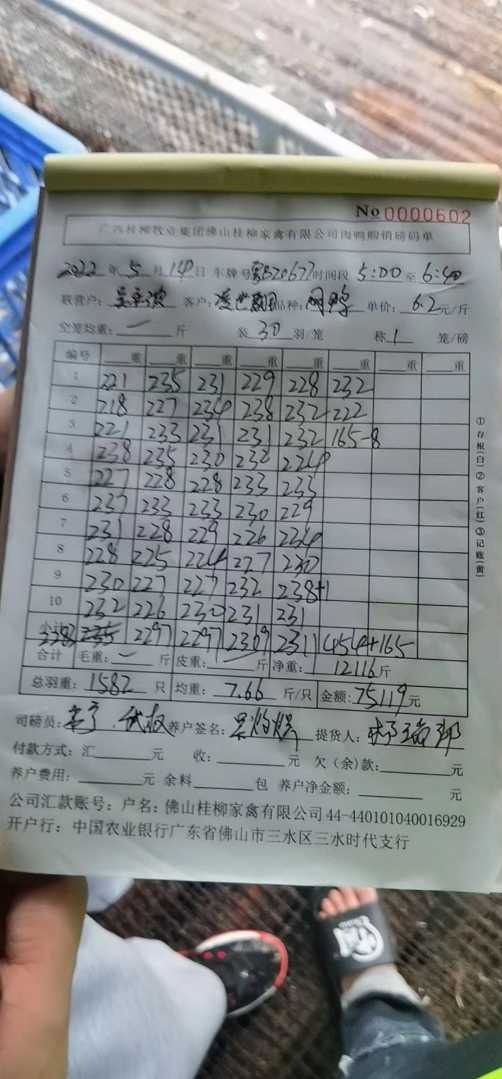 No 0000602
广西桂柳牧业集团佛山桂柳家禽有限公司肉鸭购销磅码单
2022年5月14日 车牌号 时间段5:00至6:40
联营户: 客户: 品种: 单价:6.2元/斤
空笼均重:一斤 装30羽/笼 称1笼/磅
编号 重 重 重 重 重 重 重 重
1 221 235 231 229 228 232
2 218 227 234 238 232 222
3 221 233 231 231 232 165-8
4 238 235 230 232 224
5 227 228 228 233 233
6 237 233 233 230 229
7 231 228 229 226 234
8 228 225 224 227 230
9 230 227 227 232 238+1
10 232 226 230 231 231
小计 2297 2297 2309 2311 454+165
合计 毛重:一斤 皮重:一斤 净重:12116斤
总羽重:1582只 均重:7.66斤/只 金额:75119元
司磅员: 养户签名: 提货人:
付款方式:汇 元 收: 元 欠(余)款: 元
养户费用: 元 余料 包 养户净金额: 元
公司汇款账号:户名:佛山桂柳家禽有限公司44-440101040016929
开户行:中国农业银行广东省佛山市三水区三水时代支行
①存根(白)②客户(红)③记账(黄)